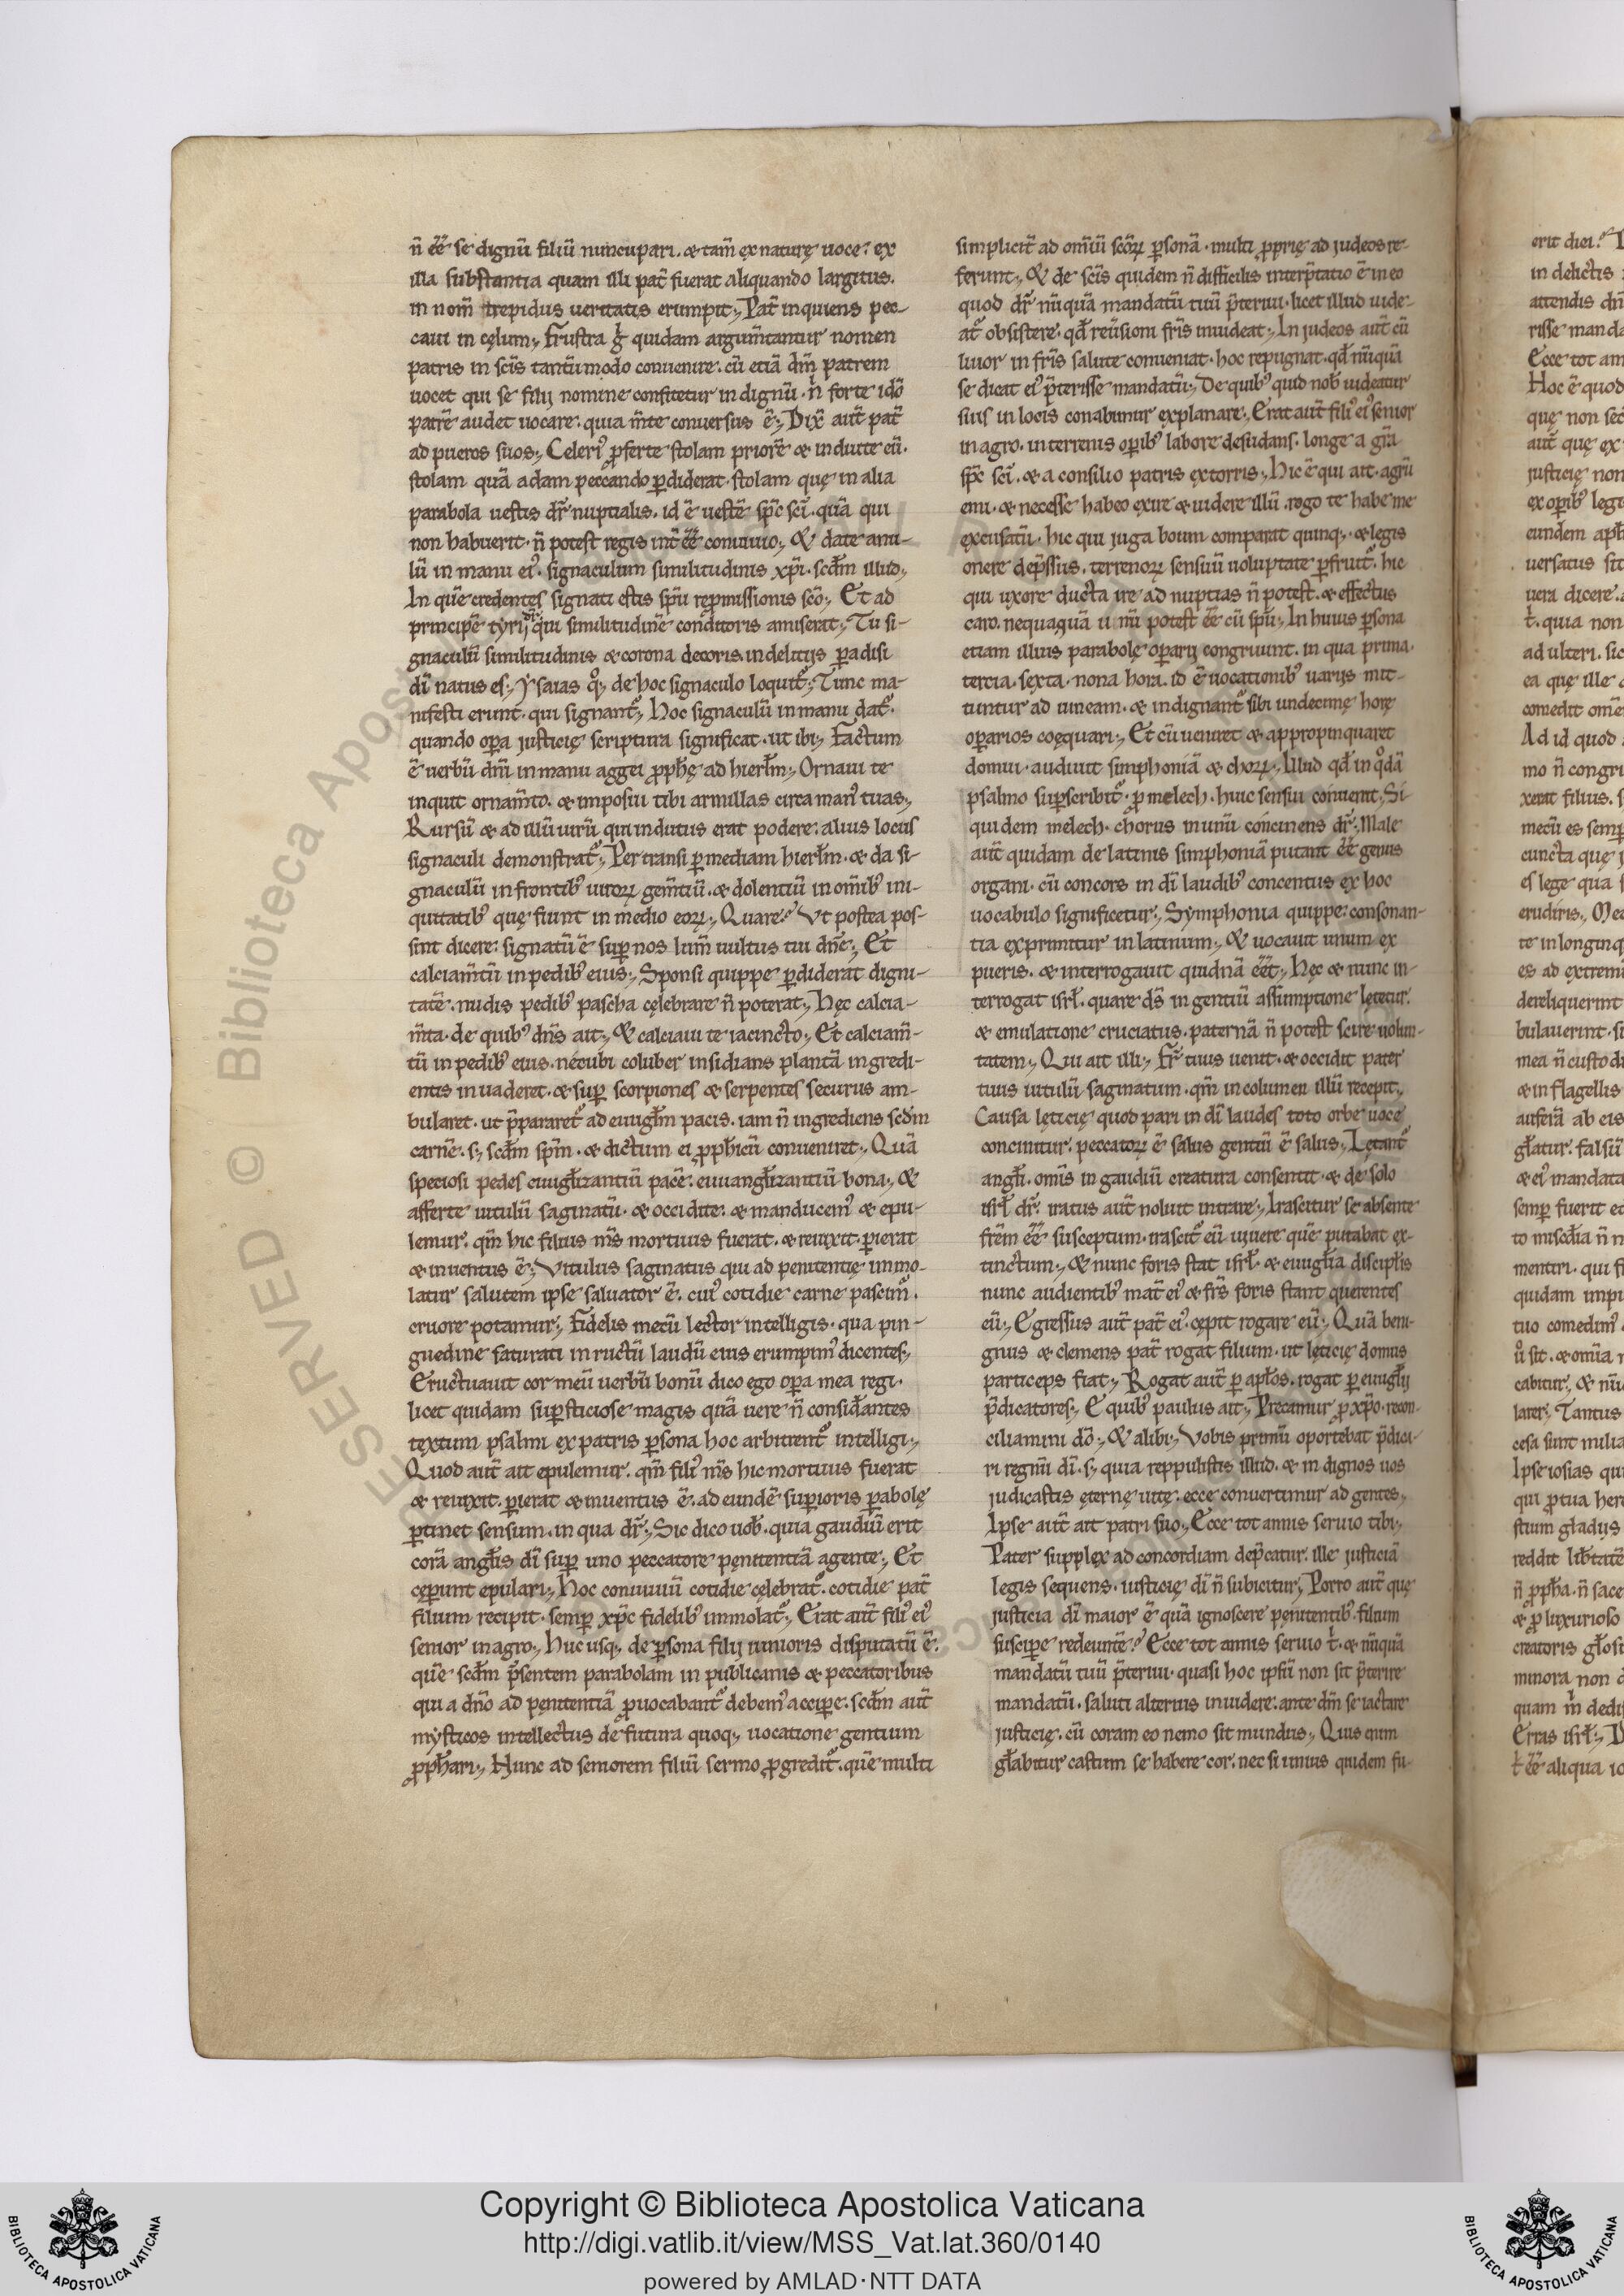 n̄ eē se dignū filiū nuncupari. & tam̄ ex naturę uoce: ex
illa substantia quam illi pat̄ fuerat aliquando largitus.
in nom̄ trepidus ueritatis erumpit. Pat̄ inquiens pec-
caui in cęlum. Frustra g̊ quidam argum̄tantur nomen
patris in sc̄is tantū modo conuenire. cū etiā dm̄ patrem
uocet qui se filij nomine confitetur indignū. n̄ forte idō
patrē audet uocare. quia m̄te conuersus ē. Dix̄ aut̄ pat̄
ad pueros suos. Celeri᾽ ꝓferte stolam priorē & induite eū.
stolam quā adam peccando ꝑdiderat. stolam quę in alia
parabola uestis dr̄ nuptialis. id ē uestē sp̄c sc̄i. quā qui
non habuerit. n̄ potest regis int̄ee conuiuio. & date anu-
lū in manu ei᾽. signaculum similitudinis xp̄i. scd̄m illud.
In quē credentes signati estis sp̄u repromissionis scō. Et ad
principē tyrij qui similitudinē conditoris amiserat. Tu si-
gnaculū similitudinis & corona decoris. in delitijs paradisi
dī natus es. Ysaias q̊. de hoc signaculo loquit᾽. Tunc ma-
nifesti erunt. qui signant᾽. Hoc signaculū in manu dat᾽.
quando oꝑa justicię scriptura significat. ut ibi. Factum
ē uerbū dn̄i in manu aggei ꝓphę ad hierl̄m. Ornaui te
inquit ornam̄to. & imposui tibi armillas circa man᾽ tuas.
Rursū & ad illū uirū qui indutus erat podere: alius locus
signaculi demonstrat᾽. Pertransi ꝑ mediam hierl̄m. & da si-
gnaculū in frontib᾽ uiroꝝ gem̄tiū. & dolentiū in om̄ib᾽ ini-
quitatib᾽ quę fiunt in medio eoꝝ. Quare? Vt postea pos-
sint dicere: signatū ē suꝑ nos lum̄ uultus tui dn̄e. Et
calciam̄tū in pedib᾽ eius. Sponsi quippe ꝑdiderat digni-
tatē. nudis pedib᾽ pascha cęlebrare n̄ poterat. Hęc calcia-
m̄ta. de quib᾽ dn̄s ait. & calciaui te iacincto. Et calciam̄-
tū in pedib᾽ eius. nećubi coluber insidians plantā ingredi-
entis inuaderet. & suꝑ scorpiones & serpentes securus am-
bularet. ut p̄pararet᾽ ad euuglm̄ pacis. iam n̄ ingrediens scdm̄
carnē. s; scd̄m spm̄. & dictum ei ꝓph̄icū conueniret. Quā
speciosi pedes euugl̄izantiū pacē: euuangl̄izantiū bona. &
afferte uitulū saginatū. & occidite: & manducem᾽ & epu-
lemur. qm̄ hic filius m̄s mortuus fuerat. & reuixit. ꝑierat
& inuentus ē. Vitulus saginatus qui ad penitentię immo-
latur salutem ipse saluator ē. cui᾽ cotidie carne pascim᾽.
cruore potamur. Fidelis mecū lector intelligis. qua pin-
guedine saturati in ructū laudū eius erumpim᾽ dicentes.
Eructauit cor meū uerbū bonū dico ego oꝑa mea regi.
licet quidam suꝑsticiose magis quā uere n̄ considantes
textum psalmi ex patris ꝑsona hoc arbitrent᾽ intelligi.
Quod aut̄ ait epulemur. qm̄ fili᾽ m̄s hic mortuus fuerat
& reuixit. ꝑierat & inuentus ē. ad eundē suꝑioris ꝑabolę
ꝑtinet sensum. in qua dr̄. Sic dico uob̄. quia gaudiū erit
corā angl̄is dī suꝑ uno peccatore pęnitentiā agente. Et
cęꝑunt epulari. Hoc conuiuiū cotidie cęlebrat᾽. cotidie pat̄
filium recipit. semꝑ xp̄c fidelib᾽ immolat᾽. Erat aut̄ fili᾽ ei᾽
senior in agro. Huc usq;. de ꝑsona filij iunioris disputatū ē.
quē scd̄m p̄sentem parabolam in publicanis & peccatoribus
qui a dn̄o ad pęnitentiā ꝓuocabant᾽ debem᾽ acciꝑe. scd̄m aut̄
mysticos intellectus de futura quoq;. uocatione gentium
ꝓph̄ari. Hunc ad seniorem filiū sermo ꝓgredit᾽. quē multi
simplicit̄ ad om̄iū scōꝝ ꝑsonā. multi ꝓprię ad judeos re-
ferunt. & de sc̄is quidem n̄ difficilis interp̄tatio ē in eo
quod dr̄ nūquā mandatū tuū p̄teriui. licet illud uide-
at᾽ obsistere. qd̄ reūsioni fr̄is inuideat. In judeos aut̄ cū
liuor in fr̄is salute conueniat. hoc repugnat. qd̄ nūquā
se dicat ei᾽ p̄terisse mandatū. De quib᾽ quid nob̄ uideatur
suis in locis conabimur explanare. Erat aut̄ fili᾽ ei᾽ senior
in agro. in terrenis oꝑib᾽ labore desudans. longe a gr̄a
sp̄c sc̄i. & a consilio patris extorris. hic ē qui ait. agrū
emi. & necesse habeo exire & uidere illū. rogo te habe me
excusatū. hic qui juga boum comparat quinq;. & legis
onere dep̄ssus. terrenoꝝ sensuū uoluptate ꝑfruit᾽. hic
qui uxore ducta ire ad nuptias n̄ potest. & effectus
caro. nequaquā u nū potest eē cū sp̄u. In huius ꝑsona
etiam illius parabolę oꝑarij congruunt. in qua prima.
tercia. sexta. nona hora. id ē uocationib᾽ uarijs mit-
tuntur ad uineam. & indignant᾽ sibi undecimę horę
oꝑarios coęquari. Et cū ueniret & appropinquaret
domui. audiuit simphoniā & choꝝ. Illud qd̄ in q̊dā
psalmo suꝑscribit᾽. ꝓ melech. huic sensui conuenit. Si-
quidem melech. chorus in unū concinens dr̄. Male
aut̄ quidam de latinis simphoniā putant eē genus
organi. cū concors in dī laudib᾽ concentus ex hoc
uocabulo significetur. Symphonia quippe: consonan-
tia exprimitur in latinum. & uocauit unum ex
pueris. & interrogauit quidnā eēt. Hęc & nunc in-
terrogat isrl̄. quare ds̄ in gentiū assumptione lętetur.
& emulatione cruciatus. paternā n̄ potest scire uolun-
tatem. Qui ait illi. Fr̄ tuus uenit. & occidit pater
tuus uitulū saginatum. qm̄ incolumen illū recepit.
Causa lęticię quod pari in dī laudes toto orbe uoce
concinitur. peccatoꝝ ē salus gentiū ē salus. Lętant᾽
angl̄i. om̄is in gaudiū creatura consentit. & de solo
isrl̄ dr̄. iratus aut̄ noluit intrare. Irascitur se absente
frēm eē susceptum. irascit᾽ eū uiuere quē putabat ex-
tinctum. & nunc foris stat isrl̄. & euuglia discipl̄is
nunc audientib᾽ mat̄ ei᾽ & fr̄s foris stant querentes
eū. Egressus aut̄ pat̄ ei᾽. cępit rogare eū. Quā beni-
gnus & clemens pat̄ rogat filium. ut lęticię domus
particeps fiat. Rogat aut̄ ꝑ apl̄os. rogat ꝑ euugl̄ij
p̄dicatores. E quib᾽ paulus ait. Precamur ꝓ xp̄o. recon-
ciliamini dō. & alibi. Vobis primū oportebat p̄dica-
ri regnū dī. s; quia reppulistis illud. & indignos uos
judicastis ęternę uitę: ecce conuertimur ad gentes.
Ipse aut̄ ait patri suo. Ecce tot annis seruio tibi.
Pater supplex ad concordiam dep̄catur. ille justiciā
legis sequens. iusticię dī n̄ subicitur. Porro aut̄ quę
justicia dī maior ē quā ignoscere pęnitentib᾽. filium
susciꝑe redeuntē? Ecce tot annis seruio t̄. & nūquā
mandatū tuū p̄teriui. quasi hoc ipsū non sit p̄terire
mandatū. saluti alterius inuidere. ante dm̄ se iactare
justicię. cū coram eo nemo sit mundus. Quis enim
gl̄abitur castum se habere cor. nec si unius quidem fu-
Copyright © Biblioteca Apostolica Vaticana
http://digi.vatlib.it/view/MSS_Vat.lat.360/0140
powered by AMLAD·NTT DATA